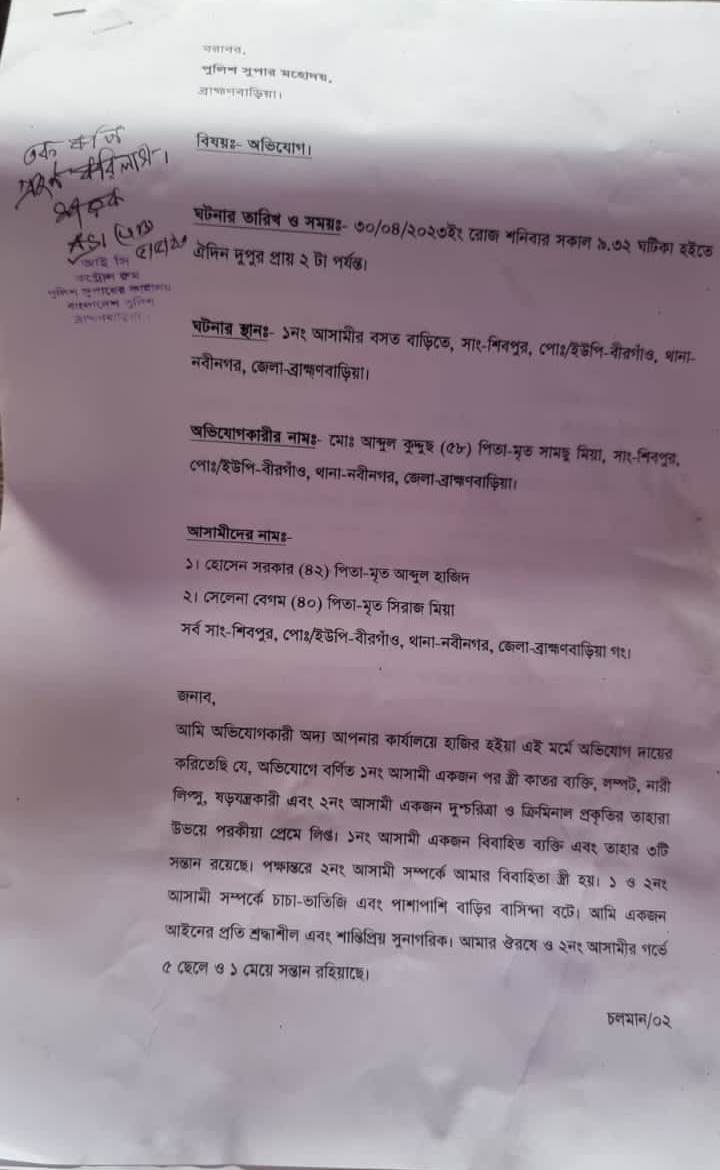 বরাবর,
পুলিশ সুপার মহোদয়,
ব্রাহ্মণবাড়িয়া।
এক কপি
গ্রহণ করিলাম।
ASI
পুলিশ সুপারের কার্যালয়
বাংলাদেশ পুলিশ
ব্রাহ্মণবাড়িয়া।
বিষয়ঃ- অভিযোগ।
ঘটনার তারিখ ও সময়ঃ- ৩০/০৪/২০২৩ইং রোজ শনিবার সকাল ৯.৩২ ঘটিকা হইতে
ঐদিন দুপুর প্রায় ২ টা পর্যন্ত।
ঘটনার স্থানঃ- ১নং আসামীর বসত বাড়িতে, সাং-শিবপুর, পোঃ/ইউপি-বীরগাঁও, থানা-
নবীনগর, জেলা-ব্রাহ্মণবাড়িয়া।
অভিযোগকারীর নামঃ- মোঃ আব্দুল কুদ্দুছ (৫৮) পিতা-মৃত সামছু মিয়া, সাং-শিবপুর,
পোঃ/ইউপি-বীরগাঁও, থানা-নবীনগর, জেলা-ব্রাহ্মণবাড়িয়া।
আসামীদের নামঃ-
১। হোসেন সরকার (৪২) পিতা-মৃত আব্দুল হাজিদ
২। সেলেনা বেগম (৪০) পিতা-মৃত সিরাজ মিয়া
সর্ব সাং-শিবপুর, পোঃ/ইউপি-বীরগাঁও, থানা-নবীনগর, জেলা-ব্রাহ্মণবাড়িয়া গং।
জনাব,
আমি অভিযোগকারী অদ্য আপনার কার্যালয়ে হাজির হইয়া এই মর্মে অভিযোগ দায়ের
করিতেছি যে, অভিযোগে বর্ণিত ১নং আসামী একজন পর স্ত্রী কাতর ব্যক্তি, লম্পট, নারী
লিপ্সু, ষড়যন্ত্রকারী এবং ২নং আসামী একজন দুশ্চরিত্রা ও ক্রিমিনাল প্রকৃতির তাহারা
উভয়ে পরকীয়া প্রেমে লিপ্ত। ১নং আসামী একজন বিবাহিত ব্যক্তি এবং তাহার ৩টি
সন্তান রয়েছে। পক্ষান্তরে ২নং আসামী সম্পর্কে আমার বিবাহিতা স্ত্রী হয়। ১ ও ২নং
আসামী সম্পর্কে চাচা-ভাতিজি এবং পাশাপাশি বাড়ির বাসিন্দা বটে। আমি একজন
আইনের প্রতি শ্রদ্ধাশীল এবং শান্তিপ্রিয় সুনাগরিক। আমার ঔরষে ও ২নং আসামীর গর্ভে
৫ ছেলে ও ১ মেয়ে সন্তান রহিয়াছে।
চলমান/০২